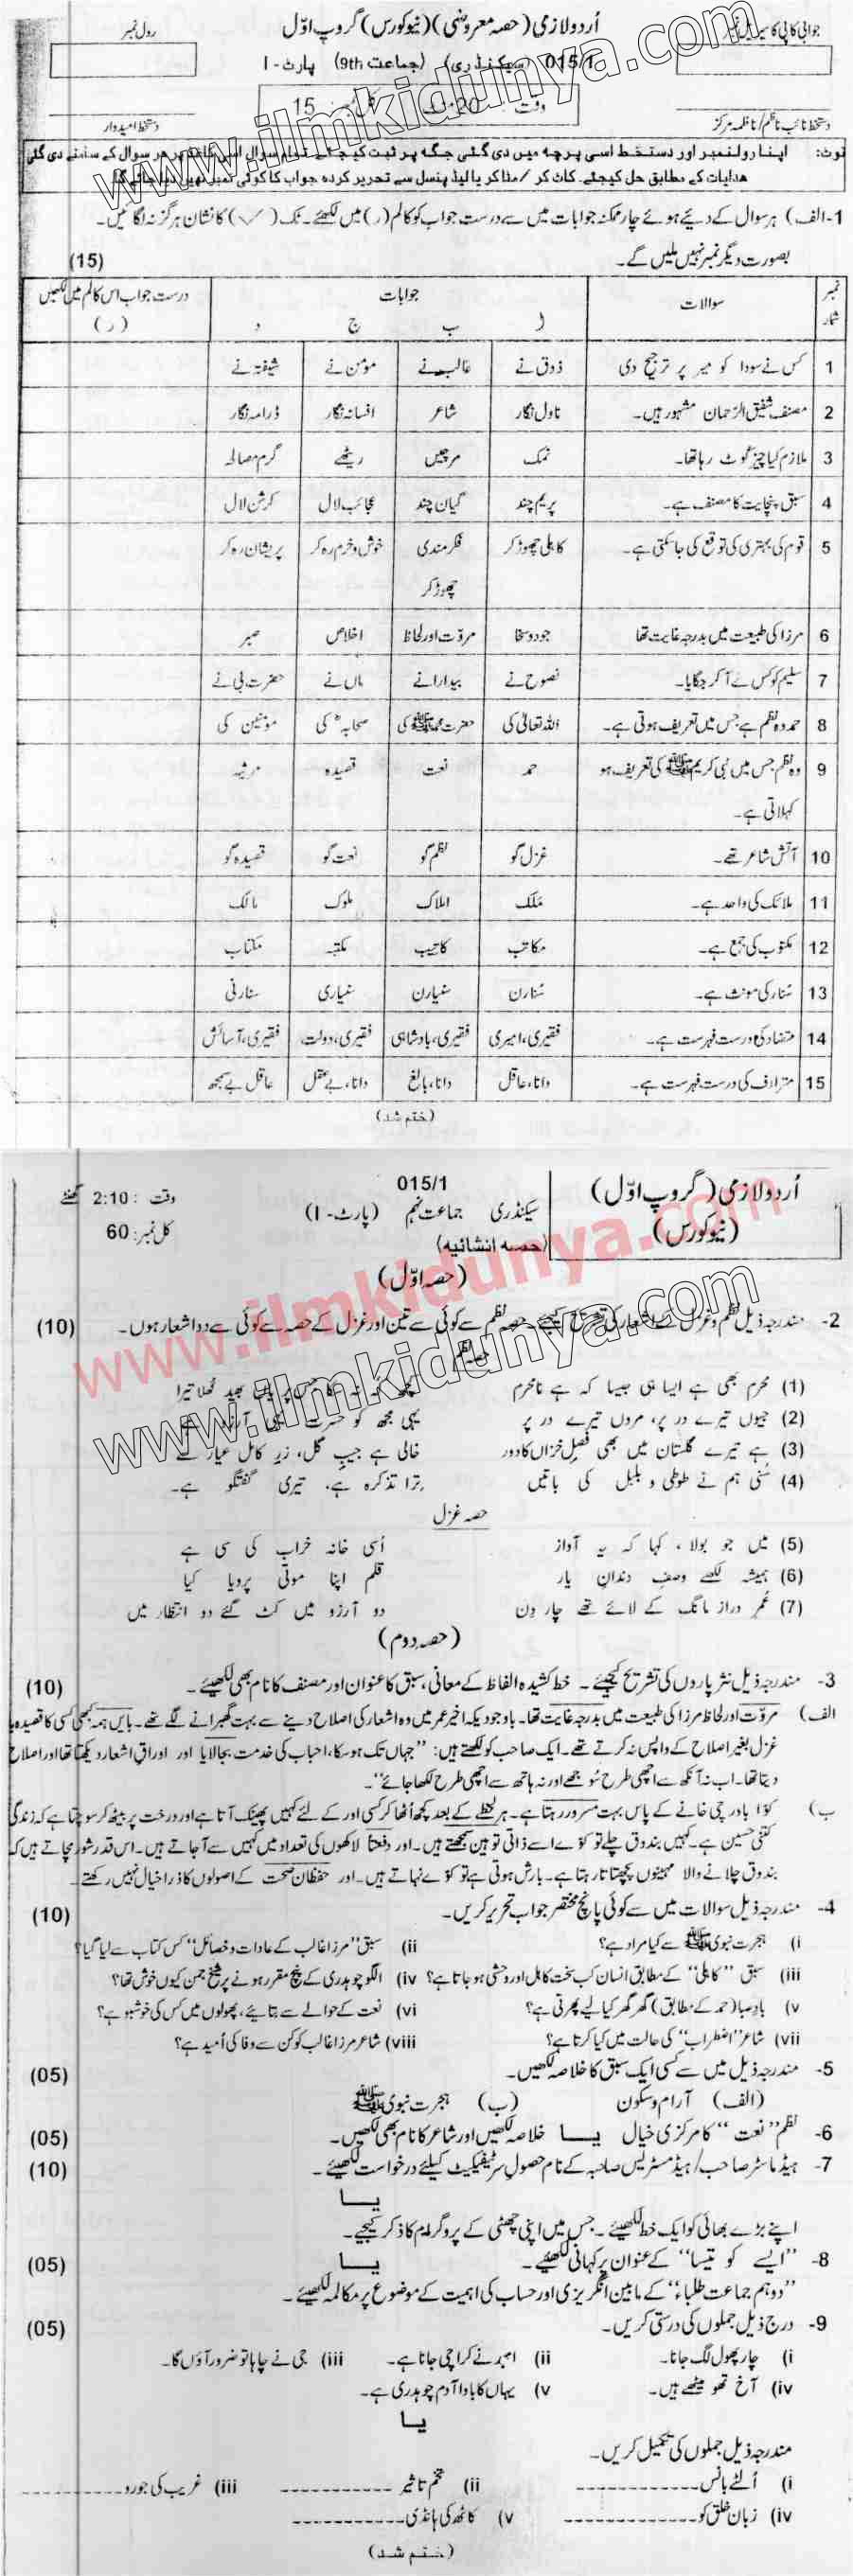 جوابی کاپی کا سیریل نمبر
اُردو لازمی (حصہ معروضی) (نیو کورس) گروپ اوّل
رول نمبر
015/1 (سیکنڈری) (جماعت 9th) پارٹ-I
وقت: 20 منٹ کل نمبر: 15
دستخط نائب ناظم/ناظمہ مرکز
دستخط امیدوار
نوٹ: اپنا رولنمبر اور دستخط اسی پرچہ میں دی گئی جگہ پر ثبت کیجئے تمام سوال اسی کاغذ پر ہر سوال کے سامنے دی گئی
ھدایات کے مطابق حل کیجئے۔ کاٹ کر / مٹا کر یا لیڈ پنسل سے تحریر کردہ جواب کا کوئی نمبر نہیں دیا جائے گا
1-الف) ہر سوال کے دئیے ہوئے چار ممکنہ جوابات میں سے درست جواب کو کالم (ر) میں لکھئے۔ ٹک (✓) کا نشان ہرگز نہ لگائیں۔
بصورت دیگر نمبر نہیں ملیں گے۔ (15)
نمبر شمار سوالات جوابات درست جواب اس کالم میں لکھیں
ا ب ج د (ر)
1 کس نے سودا کو میر پر ترجیح دی ذوق نے غالب نے مومن نے شیفتہ نے
2 مصنف شفیق الرحمان مشہور ہیں۔ ناول نگار شاعر افسانہ نگار ڈرامہ نگار
3 ملازم کیا چیز کوٹ رہا تھا۔ نمک مرچیں ریٹھے گرم مصالحہ
4 سبق پنچایت کا مصنف ہے۔ پریم چند گیان چند عجائب لال کرشن لال
5 قوم کی بہتری کی توقع کی جا سکتی ہے۔ کاہلی چھوڑ کر فکر مندی چھوڑ کر خوش و خرم رہ کر پریشان رہ کر
6 مرزا کی طبیعت میں بدرجہ غایت تھا جود و سخا مروّت اور لحاظ اخلاص صبر
7 سلیم کو کس نے آ کر جگایا۔ نصوح نے بیدارا نے ماں نے حضرت بی نے
8 حمد وہ نظم ہے جس میں تعریف ہوتی ہے۔ اللہ تعالیٰ کی حضرت محمدﷺ کی صحابہؓ کی مومنین کی
9 وہ نظم جس میں نبی کریمﷺ کی تعریف ہو کہلاتی ہے۔ حمد نعت قصیدہ مرثیہ
10 آتش شاعر تھے۔ غزل گو نظم گو نعت گو قصیدہ گو
11 ملائک کی واحد ہے۔ ملک املاک ملوک مالک
12 مکتوب کی جمع ہے۔ مکاتب کاتیب مکتبہ مکتاب
13 سنار کی مونث ہے۔ سُنارن سنیارن سنیاری سنارنی
14 متضاد کی درست فہرست ہے۔ فقیری، امیری فقیری، بادشاہی فقیری، دولت، فقیری، آسائش
15 مترادف کی درست فہرست ہے۔ دانا، عاقل دانا، بالغ دانا، بے عقل عاقل بے سمجھ
(ختم شد)
اُردو لازمی (گروپ اوّل)
(نیو کورس)
015/1
سیکنڈری جماعت نہم (پارٹ-I)
(حصہ انشائیہ)
وقت: 2:10 گھنٹے
کل نمبر: 60
(حصہ اوّل)
2- مندرجہ ذیل نظم و غزل کے اشعار کی تشریح کیجیے۔ حصہ نظم سے کوئی سے تین اور غزل کے حصہ سے کوئی سے دو اشعار ہوں۔ (10)
حصہ نظم
(1) محرم بھی ہے ایسا ہی جیسا کہ ہے نامحرم کچھ کہہ نہ سکا جس پر یاں بھید کھلا تیرا
(2) جیوں تیرے در پر، مروں تیرے در پر یہی مجھ کو حسرت یہی آرزو ہے
(3) ہے تیرے گلستان میں بھی فصل خزاں کا دور خالی ہے جیبِ گل، زرِ کامل عیار سے
(4) سُنی ہم نے طوطی و بلبل کی باتیں ترا تذکرہ ہے، تیری گفتگو ہے۔
حصہ غزل
(5) میں جو بولا، کہا کہ یہ آواز اُسی خانہ خراب کی سی ہے
(6) ہمیشہ لکھے وصفِ دندانِ یار قلم اپنا موتی پرویا کیا
(7) عُمرِ دراز مانگ کے لائے تھے چار دِن دو آرزو میں کٹ گئے دو انتظار میں
(حصہ دوم)
3- مندرجہ ذیل نثر پاروں کی تشریح کیجیئے۔ خط کشیدہ الفاظ کے معانی، سبق کا عنوان اور مصنف کا نام بھی لکھیئے۔ (10)
الف) مروّت اور لحاظ مرزا کی طبیعت میں بدرجہ غایت تھا۔ باوجودیکہ اخیر عمر میں وہ اشعار کی اصلاح دینے سے بہت گھبرانے لگے تھے۔ بایں ہمہ کبھی کسی کا قصیدہ یا
غزل بغیر اصلاح کے واپس نہ کرتے تھے۔ ایک صاحب کو لکھتے ہیں: "جہاں تک ہو سکا، احباب کی خدمت بجا لایا اور اوراقِ اشعار دیکھتا تھا اور اصلاح
دیتا تھا۔ اب نہ آنکھ سے اچھی طرح سُوجھے اور نہ ہاتھ سے اچھی طرح لکھا جائے"۔
ب) کوّا باورچی خانے کے پاس بہت مسرور رہتا ہے۔ ہر لحظے کے بعد کچھ اُٹھا کر کسی اور کے لئے کہیں پھینک آتا ہے اور درخت پر بیٹھ کر سوچتا ہے کہ زندگی
کتنی حسین ہے۔ کہیں بندوق چلے تو کوّے اسے ذاتی توہین سمجھتے ہیں۔ اور دفعتاً لاکھوں کی تعداد میں کہیں سے آ جاتے ہیں۔ اس قدر شور مچاتے ہیں کہ
بندوق چلانے والا مہینوں پچھتاتا رہتا ہے۔ بارش ہوتی ہے تو کوّے نہاتے ہیں۔ اور حفظانِ صحت کے اصولوں کا ذرا خیال نہیں رکھتے۔
4- مندرجہ ذیل سوالات میں سے کوئی پانچ مختصر جواب تحریر کریں۔ (10)
i) ہجرت نبویﷺ سے کیا مراد ہے؟ ii) سبق "مرزا غالب کے عادات و خصائل" کس کتاب سے لیا گیا؟
iii) سبق "کاہلی" کے مطابق انسان کب سخت کاہل اور وحشی ہو جاتا ہے؟ iv) الگو چوہدری کے پنچ مقرر ہونے پر شیخ جمن کیوں خوش تھا؟
v) بادِ صبا (حمد کے مطابق) گھر گھر کیا لیے پھرتی ہے؟ vi) نعت کے حوالے سے بتایئے، پھولوں میں کس کی خوشبو ہے؟
vii) شاعر "اضطراب" کی حالت میں کیا کرتا ہے؟ viii) شاعر مرزا غالب کو کن سے وفا کی اُمید ہے؟
5- مندرجہ ذیل میں سے کسی ایک سبق کا خلاصہ لکھیں۔ (05)
(الف) آرام و سکون (ب) ہجرت نبویﷺ
6- نظم "نعت" کا مرکزی خیال یــا خلاصہ لکھیں اور شاعر کا نام بھی لکھیں۔ (05)
7- ہیڈ ماسٹر صاحب/ہیڈ مسٹریس صاحبہ کے نام حصول سرٹیفکیٹ کیلئے درخواست لکھیئے۔ (10)
یــا
اپنے بڑے بھائی کو ایک خط لکھیئے۔ جس میں اپنی چھٹی کے پروگرام کا ذکر کیجیے۔
8- "ایسے کو تیسا" کے عنوان پر کہانی لکھیئے۔ یــا (05)
"دو ہم جماعت طلباء" کے مابین انگریزی اور حساب کی اہمیت کے موضوع پر مکالمہ لکھیئے۔
9- درج ذیل جملوں کی درستی کریں۔ (05)
i) چار پھول لگ جانا۔ ii) امبر نے کراچی جانا ہے۔ iii) جی نے چاہا تو ضرور آؤں گا۔
iv) آخ تھو میٹھے ہیں۔ v) یہاں کا باوا آدم چوہدری ہے۔
یــا
مندرجہ ذیل جملوں کی تکمیل کریں۔
i) اُلٹے بانس ---------- ii) تخم تاثیر ---------- iii) غریب کی جورو ----------
iv) زبانِ خلق کو ---------- v) کاٹھ کی ہانڈی ----------
(ختم شد)
www.ilmkidunya.com
www.ilmkidunya.com
www.ilmkidunya.com